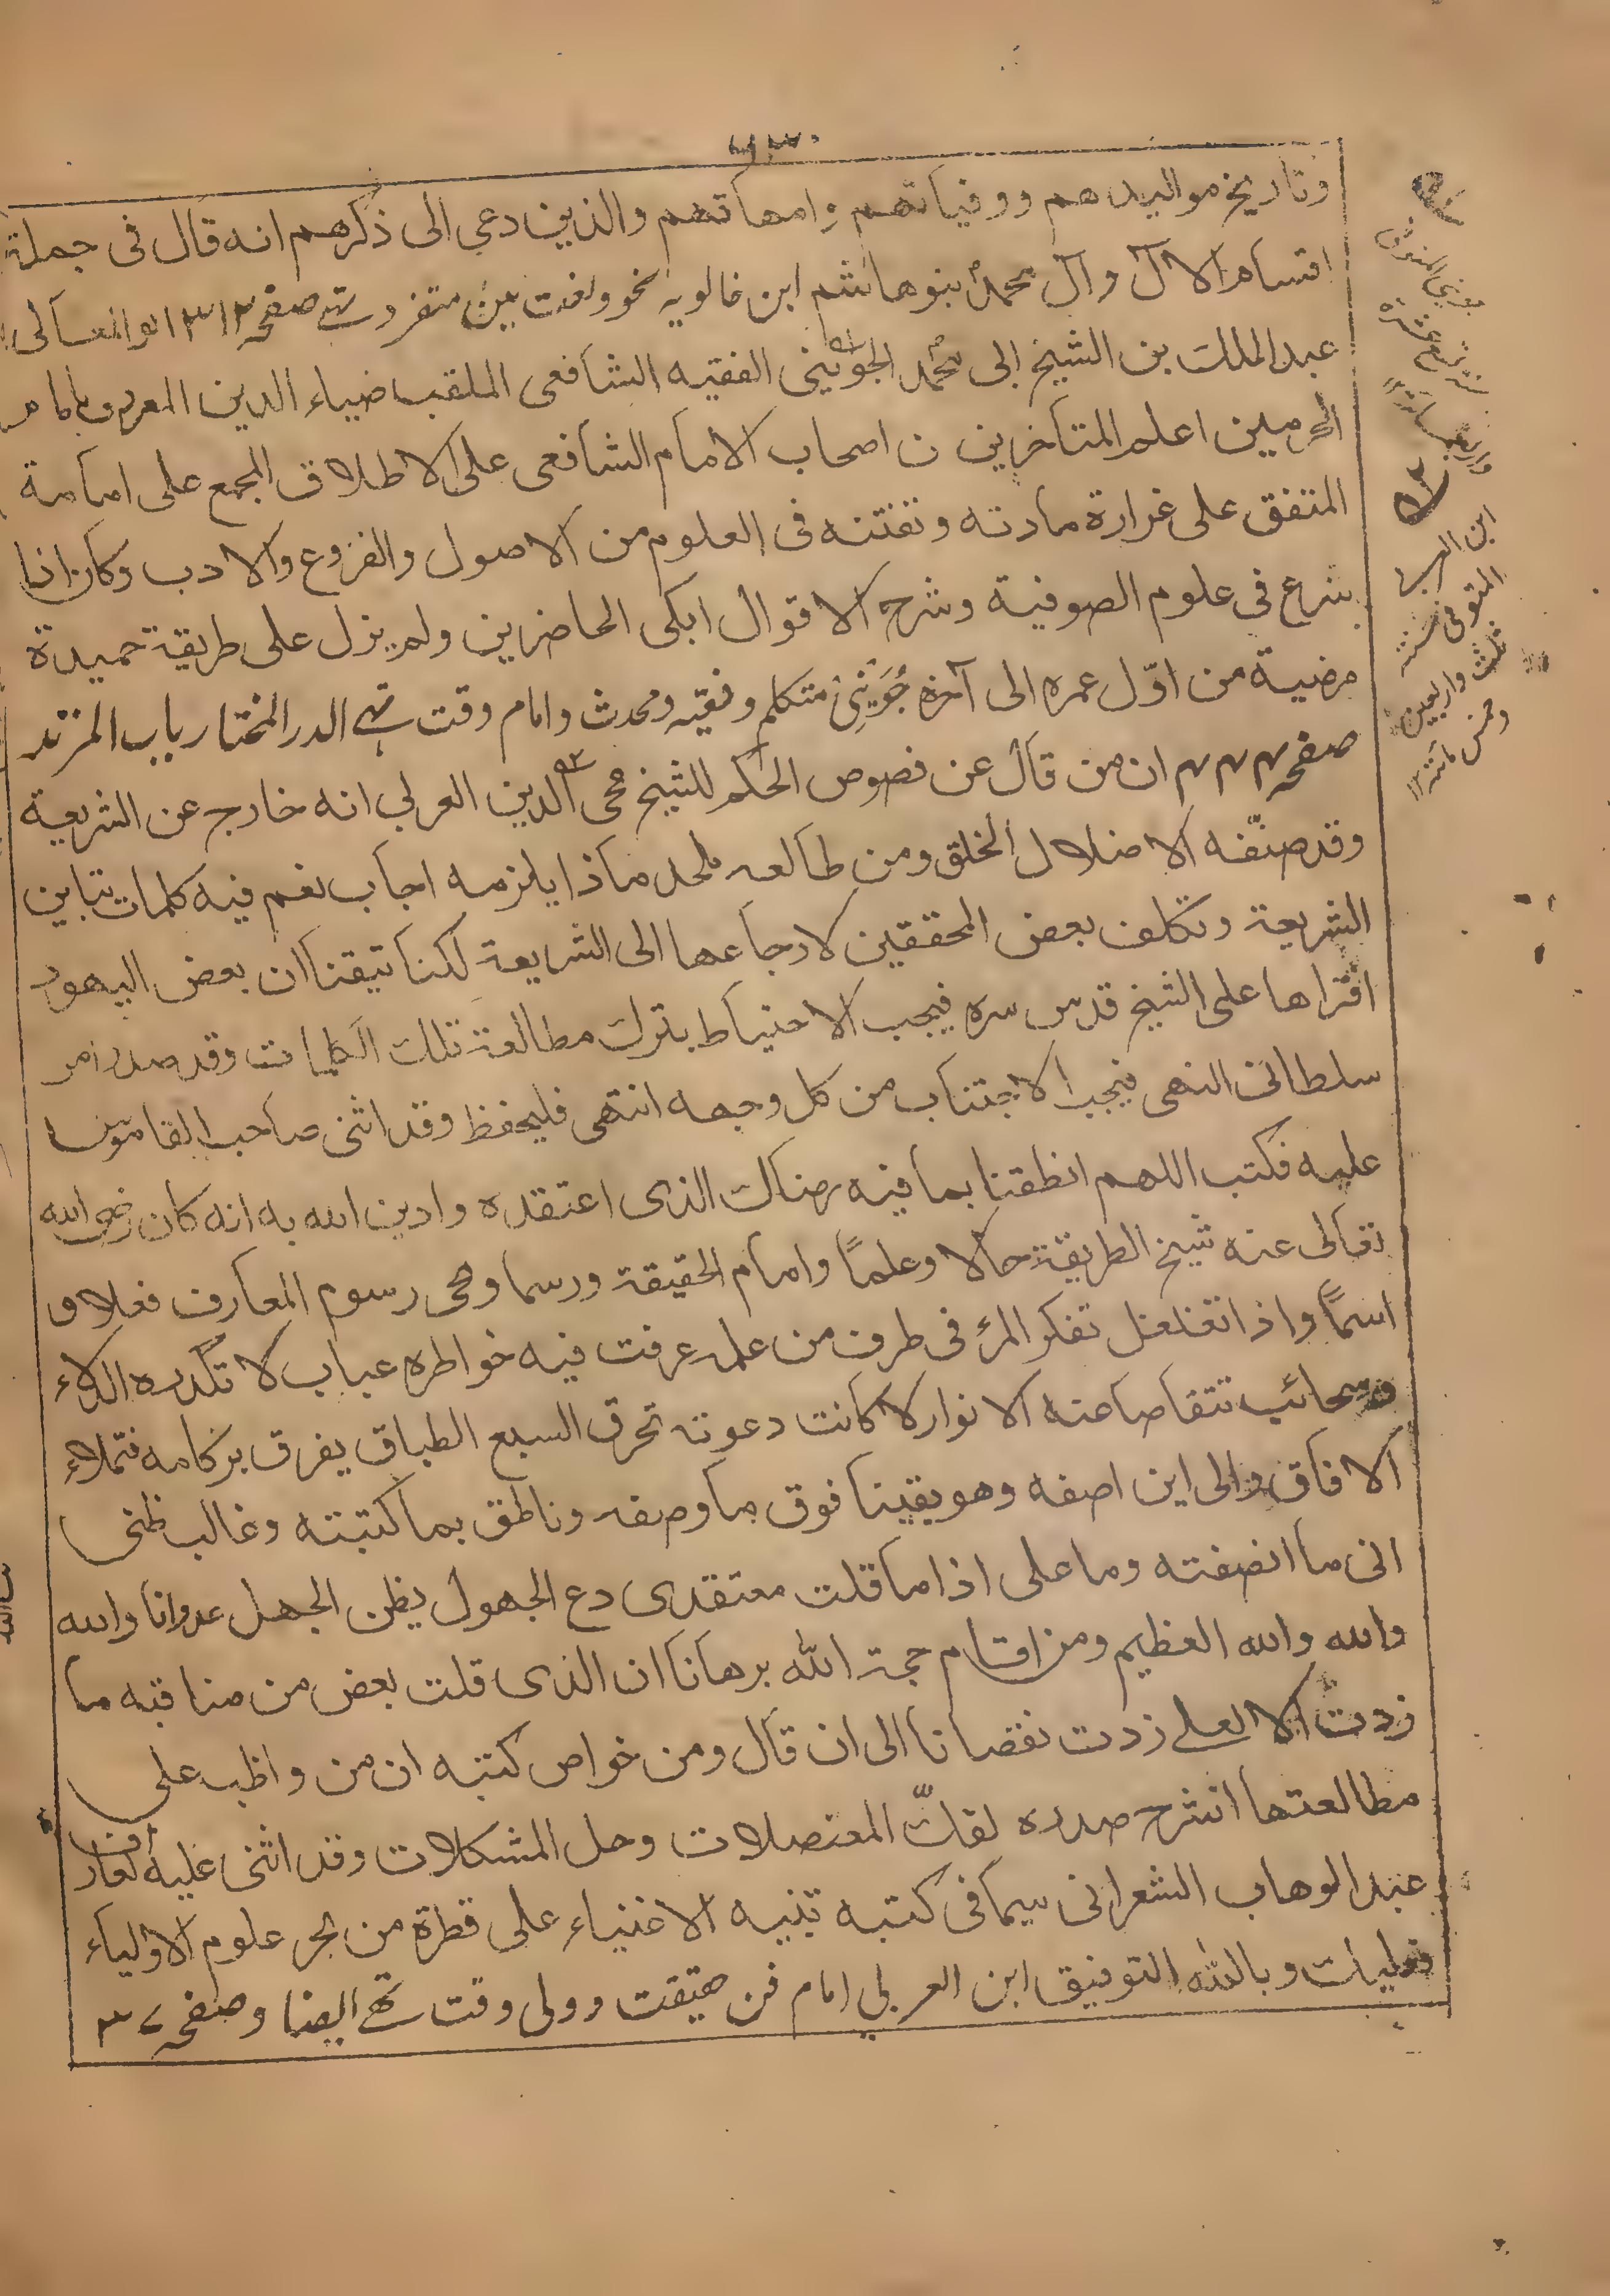 وتاريخ مواليدهم ووفياتهم وامهاتهم والذين دعى الى ذكرهم انه قال فى جملة
اقتسام الآل وآل محمد بنوهاشم ابن خالويہ نحو ولغت مین متفرد تھے صفحہ ۳۱۲ ابو المعالى
عبد الملك بن الشيخ ابى محمد الجوينى الفقيه الشافعى الملقب ضياء الدين المعروف بامام
الحرمين اعلم المتاخرين ن اصحاب الامام الشافعى على الاطلاق المجمع على امامة
المتفق على غرارة مادته وتفتنه فى العلوم من الاصول والفروع والادب وكان اذا
شرع فى علوم الصوفية وشرح الاقوال ابكى الحاضرين ولم يزل على طريقة حميدة
مرضية من اوّل عمره الى آخره جُوَيْنِىْ متكلم وفقيه ومحدث وامام وقت تھے الدر المختار باب المرتد
صفحہ ۳۴۴ ان من قال عن فصوص الحكم للشيخ محى الدين العربى انه خارج عن الشريعة
وقد صنّفه الاضلال الخلق ومن طالعه ملحد ماذا يلزمه اجاب نعم فيه كلمات تباين
الشريعة وتكلف بعض المحققين لارجاعها الى الشريعة لكنا تيقنا ان بعض اليهود
افتراها على الشيخ قدس سره فيجب الاحتياط بترك مطالعة تلك الكلمات وقد صدر امر
سلطانى النهى فيجب الاجتناب من كل وجهه انتهى فليحفظ وقد اثنى صاحب القاموس
عليه فكتب اللهم انطقنا بما فيه رضاك الذى اعتقده وادين الله به انه كان رضى الله
تعالى عنه شيخ الطريقة حالا وعلمًا وامام الحقيقة ورسما ومحى رسوم المعارف فعلا و
اسمًا واذا تغلغل تفكر المرء فى طرف من علمه غرفت فيه خواطره عباب لا تكدره الدلاء
وسحائب تتقاصا عنه الانوار لا كانت دعوته تخرق السبع الطباق يفرق بركامه فتملاء
الافاق والى اين اصفه وهو يقينا فوق ما وصفه وناطق بما كتبته وغالب ظنى
انى ما انصفته وما على اذا ما قلت معتقدى دع الجهول يظن الجهل عدوانا والله
والله والله العظيم ومن اقام حجة الله برهانا ان الذى قلت بعض من مناقبه ما
زدت الا لعلے زدت نقصانا الى ان قال ومن خواص كتبه ان من واظب على
مطالعتها انشرح صدره لفك المعتصلات وحل المشكلات وقد اثنى عليه العارف
عبد الوهاب الشعرانى سيما فى كتبه تنبيه الاغنياء على قطرة من بحر علوم الاولياء
فعليك وبالله التوفيق ابن العربى امام فن حقيقت وولى وقت تھے ايضا وصفحہ ۳۷
ابن العربی
المتوفى سنته
ثلث واربعين
وخمس مائته ۱۲